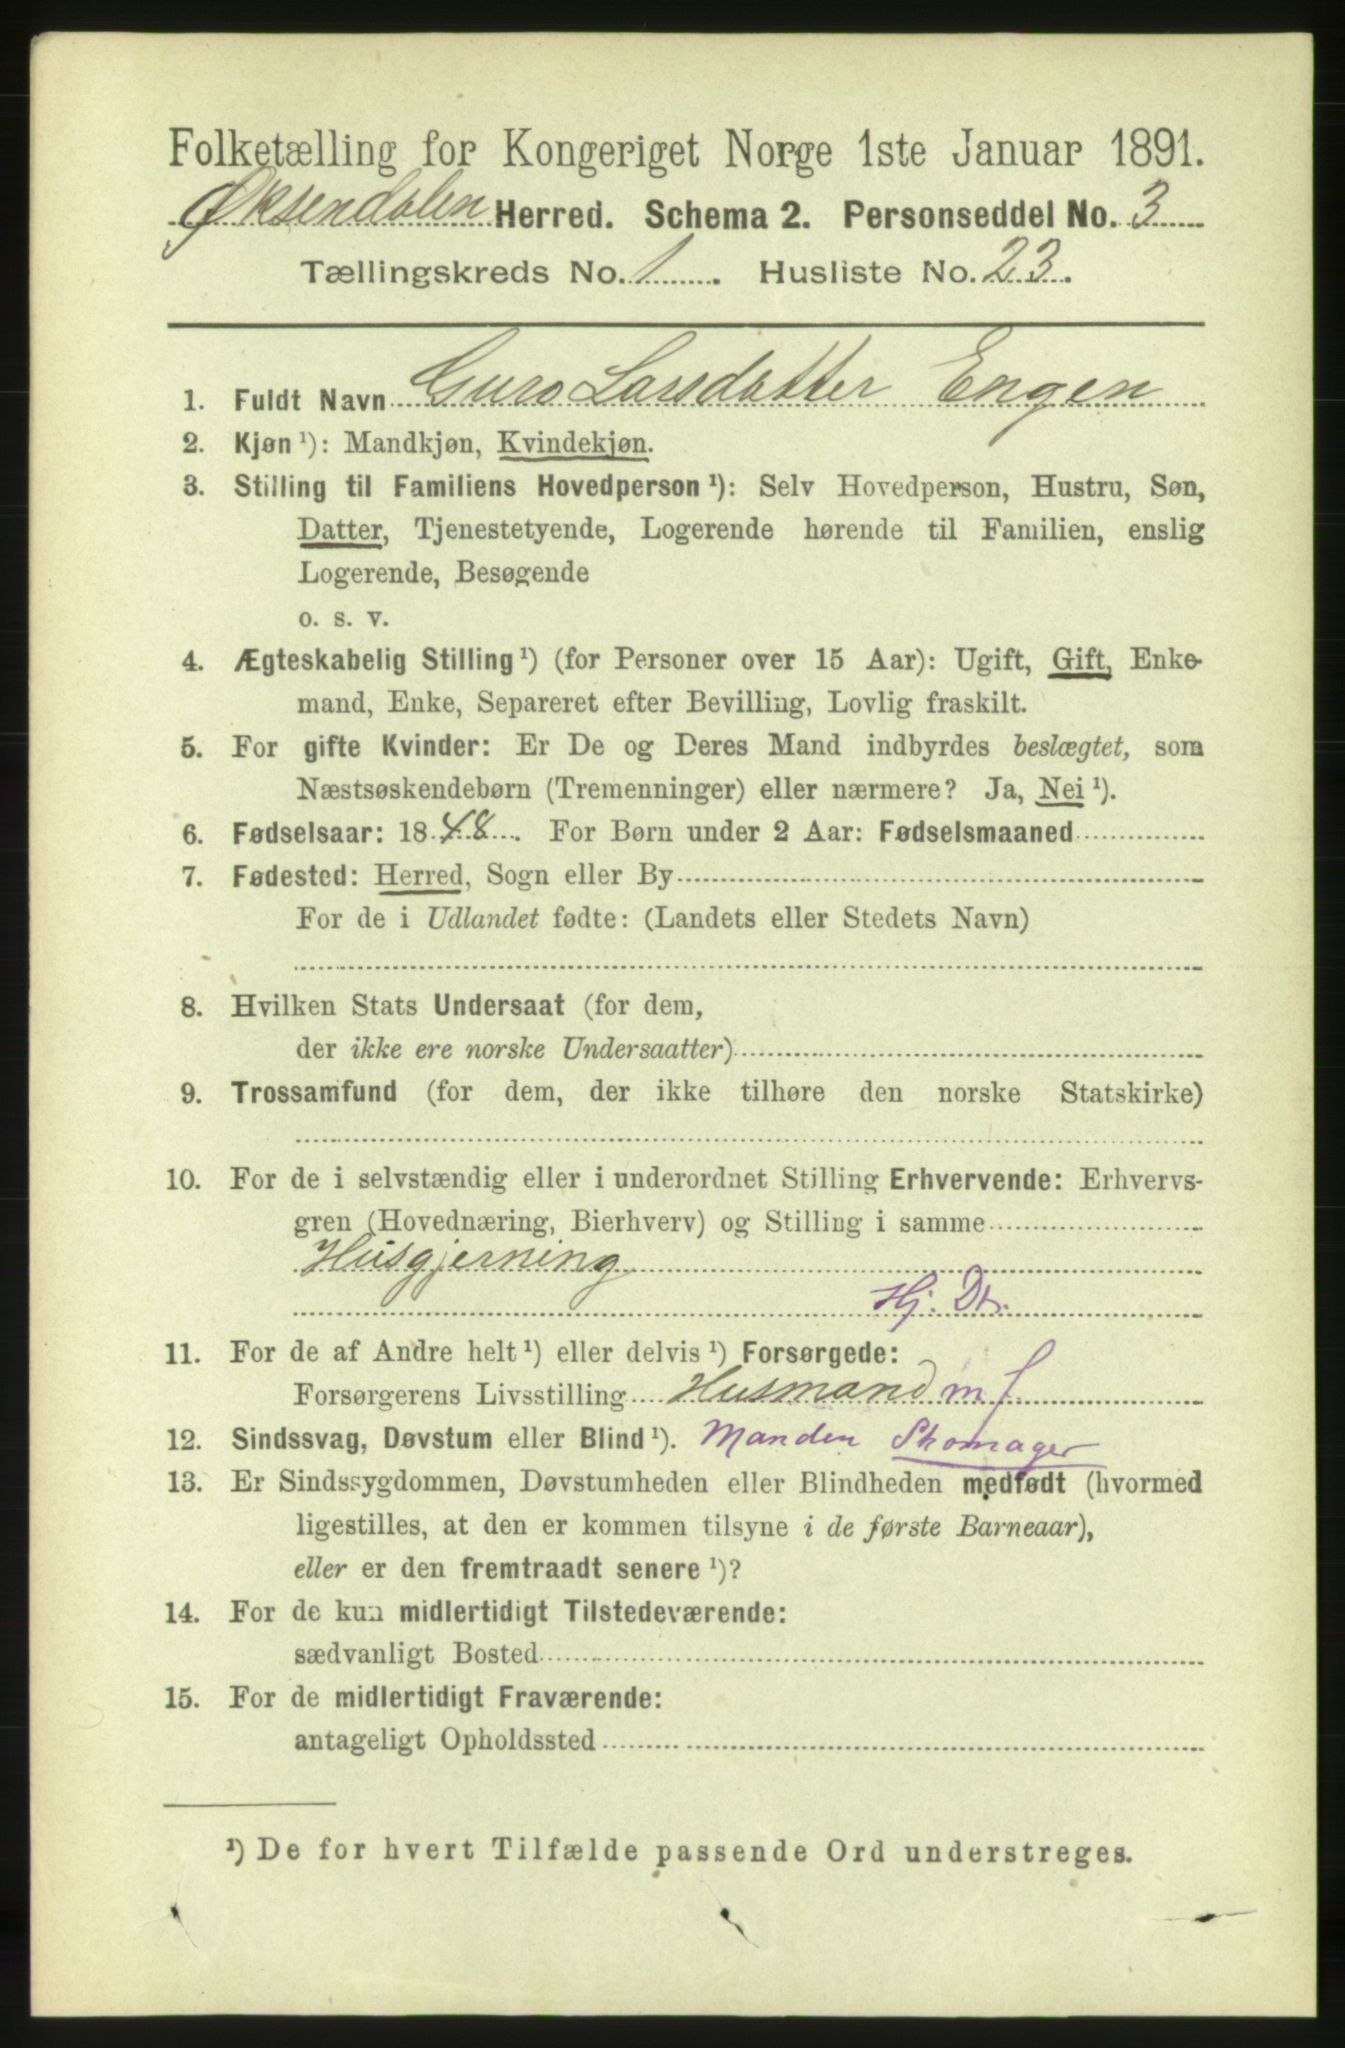 Folketælling for Kongeriget Norge 1ste Januar 1891.
Øksendalen Herred. Schema 2. Personseddel No. 3
Tællingskreds No. 1. Husliste No. 23.
1. Fuldt Navn Guro Larsdatter Engen
2. Kjøn ¹): Mandkjøn, Kvindekjøn.
3. Stilling til Familiens Hovedperson ¹): Selv Hovedperson, Hustru, Søn,
Datter, Tjenestetyende, Logerende hørende til Familien, enslig
Logerende, Besøgende
o. s. v.
4. Ægteskabelig Stilling ¹) (for Personer over 15 Aar): Ugift, Gift, Enke-
mand, Enke, Separeret efter Bevilling, Lovlig fraskilt.
5. For gifte Kvinder: Er De og Deres Mand indbyrdes beslægtet, som
Næstsøskendebørn (Tremenninger) eller nærmere? Ja, Nei ¹).
6. Fødselsaar: 1848. For Børn under 2 Aar: Fødselsmaaned
7. Fødested: Herred, Sogn eller By
For de i Udlandet fødte: (Landets eller Stedets Navn)
8. Hvilken Stats Undersaat (for dem,
der ikke ere norske Undersaatter)
9. Trossamfund (for dem, der ikke tilhøre den norske Statskirke)
10. For de i selvstændig eller i underordnet Stilling Erhvervende: Erhvervs-
gren (Hovednæring, Bierhverv) og Stilling i samme
Husgjerning
Hj. Dt.
11. For de af Andre helt ¹) eller delvis ¹) Forsørgede:
Forsørgerens Livsstilling Husmand m f
12. Sindssvag, Døvstum eller Blind ¹). Manden Skomager
13. Er Sindssygdommen, Døvstumheden eller Blindheden medfødt (hvormed
ligestilles, at den er kommen tilsyne i de første Barneaar),
eller er den fremtraadt senere ¹)?
14. For de kun midlertidigt Tilstedeværende:
sædvanligt Bosted
15. For de midlertidigt Fraværende:
antageligt Opholdssted
¹) De for hvert Tilfælde passende Ord understreges.